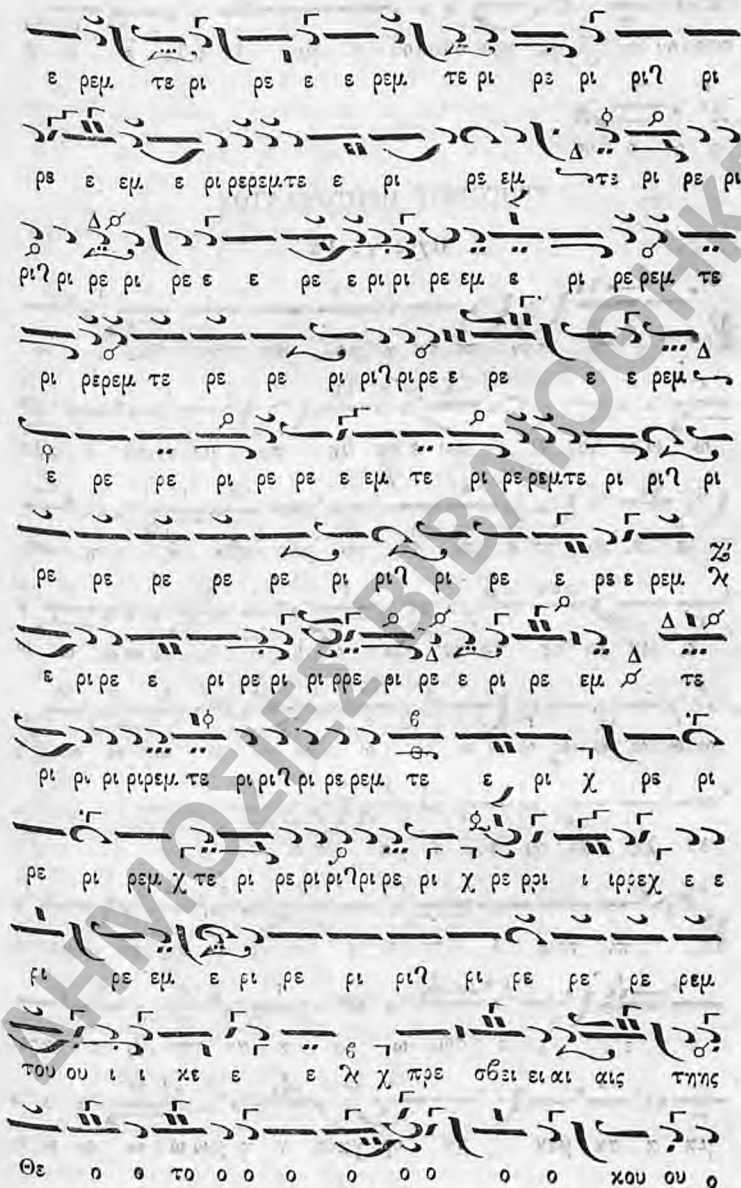 ε ρεμ τε ρι ρε ε ε ρεμ τε ρι ρε ρι ριλ ρι
ρε ε εμ ε ρι ρερεμτε ε ρι ρε εμ τε ρι ρε ρι
ριλ ρι ρε ρι ρε ε ε ρε ε ρι ρι ρε εμ ε ρι ρε ρεμ τε
ρι ρερεμ τε ρε ρε ρι ριλ ρι ρε ε ρε ε ε ρεμ
ε ρε ρε ρι ρε ρε ε εμ τε ρι ρε ρεμτε ρι ριλ ρι
ρε ρε ρε ρε ρε ρι ριλ ρι ρε ε ρε ε ρεμ
ε ρι ρε ε ρι ρε ρι ρι ρρε ρι ρε ε ρι ρε εμ τε
ρι ρι ρι ριρεμ τε ρι ριλ ρι ρε ρεμ τε ε ρι χ ρε ρι
ρε ρι ρεμ χ τε ρι ρε ρι ριλρι ρε ρι χ ρε ρρι ι ιρρεχ ε ε
ρι ρε εμ ε ρι ρε ρι ριλ ρι ρε ρε ρε ρεμ
του ου ι ι κε ε ε χ πρε σβει ει αι αις τηης
Θε ο ο το ο ο ο ο ο ο ο ο κου ου ο
ΔΗΜΟΣΙΕΣ ΒΙΒΛΙΟΘΗΚΕ